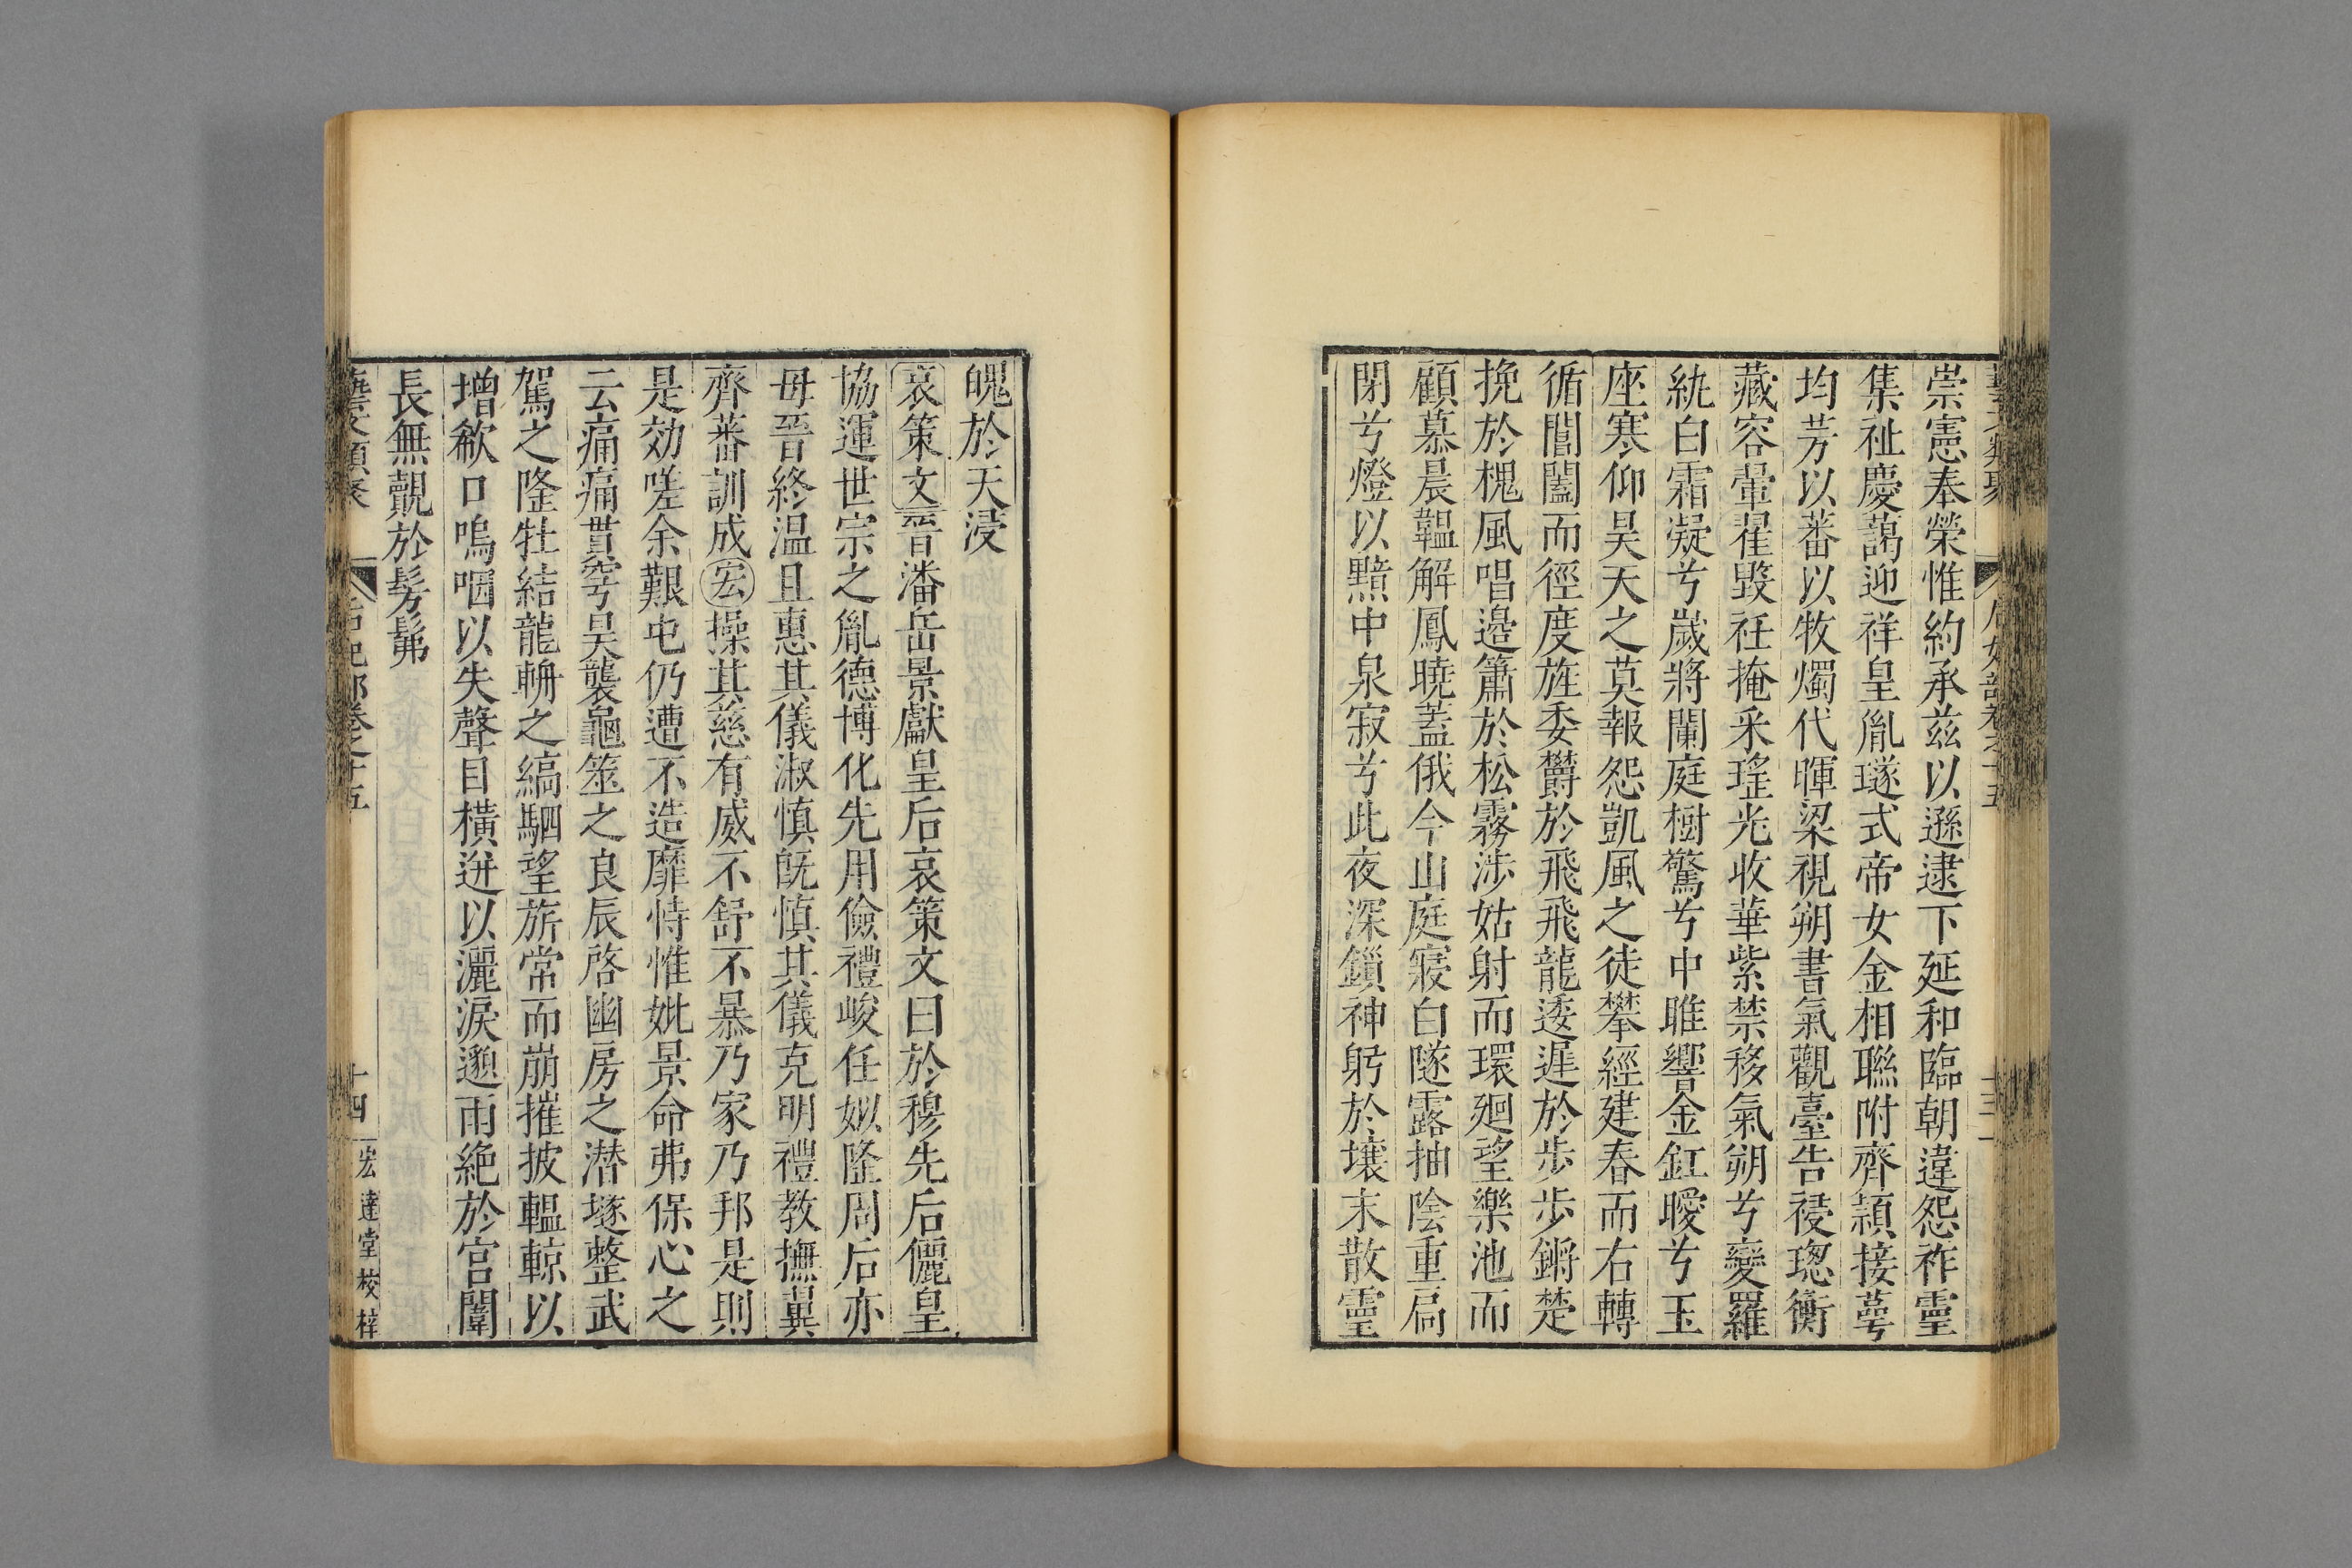 崇憲奉榮惟約承茲以遜逮下延和臨朝違怨祚靈
集祉慶藹迎祥皇胤璲式帝女金相聯附齊穎接蕚
均芳以蕃以牧燭代暉梁視朔書氣觀臺告祲璁衡
藏容翬翟毀衽掩釆瑤光收華紫禁移氣朔兮變羅
紈白霜凝兮歲將闌庭樹驚兮中雎響金釭曖兮玉
座寒仰昊天之莫報怨凱風之徒攀經建春而右轉
循閶闔而徑度旌委欝於飛飛龍逶遲於步步鏘楚
挽於槐風唱邉簫於松霧涉姑射而環廻望樂池而
顧慕晨轀解鳳曉蓋俄今山庭寢白隧露抽陰重扃
閉兮燈以黯中泉寂兮此夜深鎖神躬於壤末散靈
魄於天浸
哀策文晉潘岳景獻皇后哀策文曰於穆先后儷皇
協運世宗之胤德博化先用儉禮峻任姒隆周后亦
毋晉終温且惠其儀淑慎旣慎其儀克明禮教撫冀
齊蕃訓成宏操其慈有威不舒不暴乃家乃邦是則
是効嗟余艱屯仍遭不造靡恃惟妣景命弗保心之
云痛痛貫穹昊襲龜筮之良辰啓幽房之潜墜整武
駕之隆牡結龍輈之縞駟望旂常而崩摧披轀輬以
增欷口嗚咽以失聲目橫迸以灑淚邈雨絶於宮闈
長無覿於髣髴
藝文類聚 后妃部卷之十五 十四 宏達堂校梓